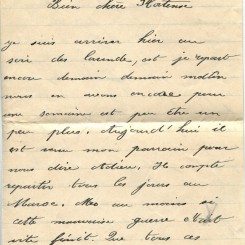 Bien chère Hortense
je suis arrivé hier au
soir des
encore demain demain matin
nous en avons encore pour
une semaine est peu être un
peu plus. Aujourd'hui il
est venu mon parrain pour
nous dire Adieu. Il compte
repartir tous les jours au
Maroc. Ah au moins si
cette mauvaise guerre
vite finit. Que tous ces